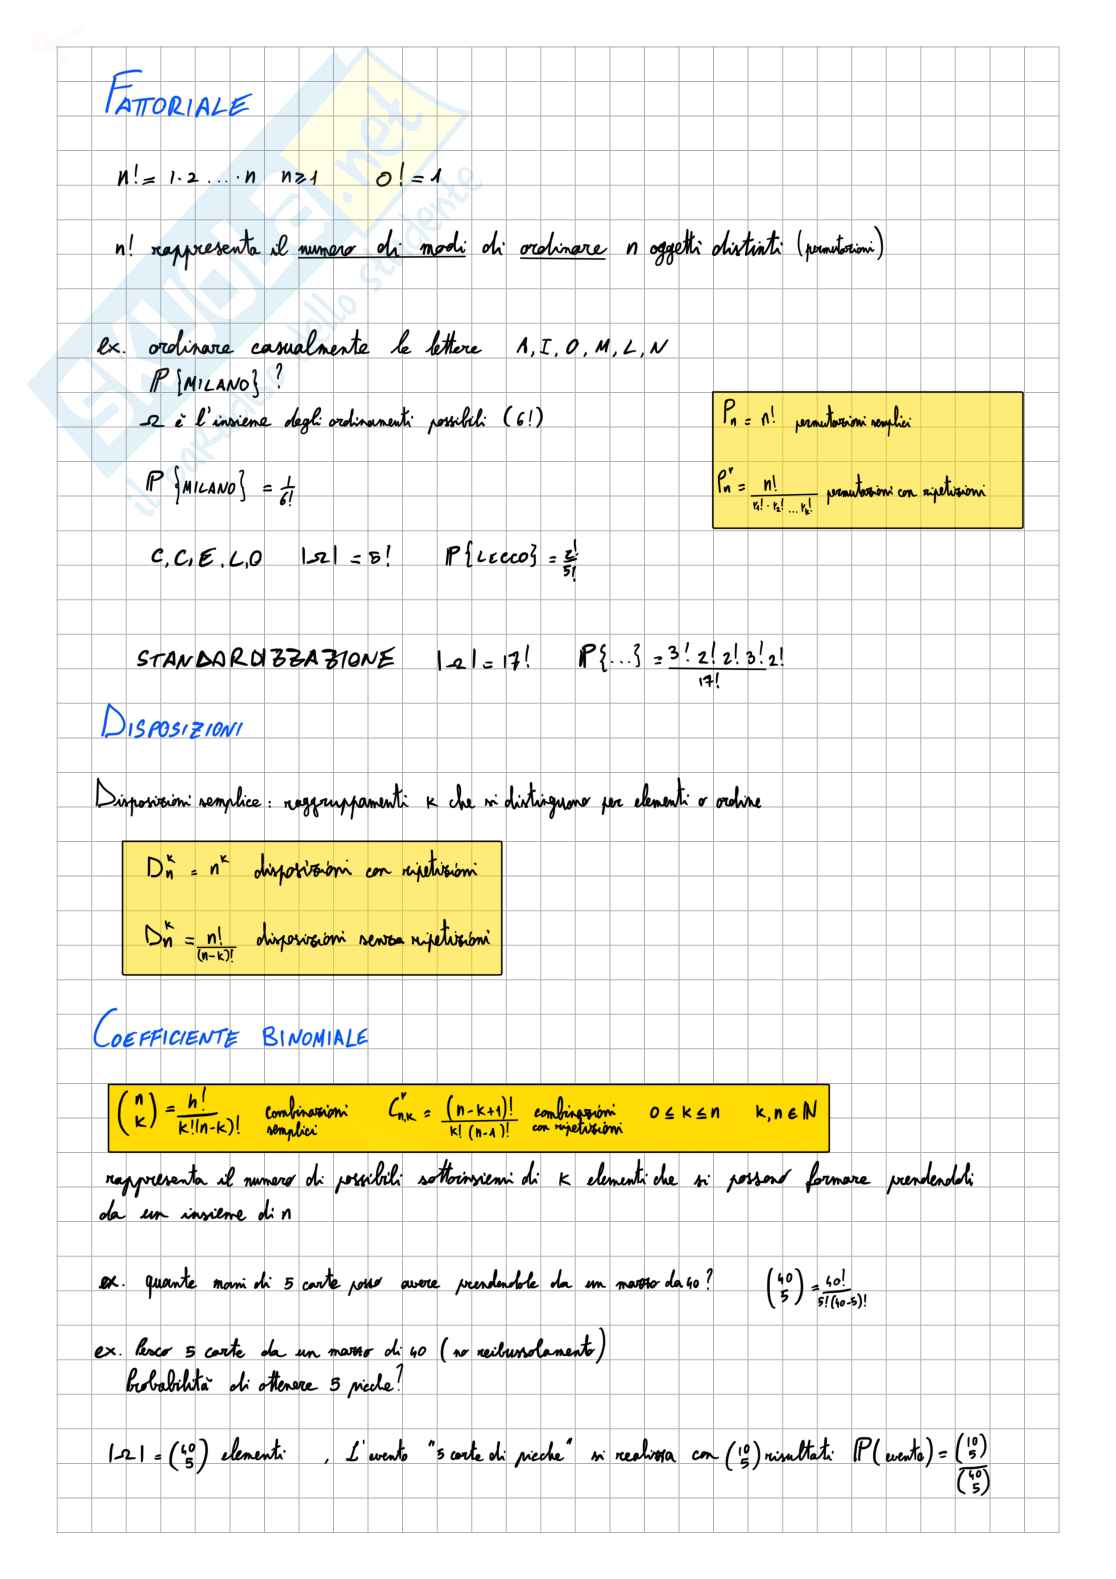 FATTORIALE
n! = 1·2 ... ·n n≥1 0! = 1
n! rappresenta il numero di modi di ordinare n oggetti distinti (permutazioni)
ex. ordinare casualmente le lettere A, I, O, M, L, N
ℙ{MILANO} ?
Ω è l'insieme degli ordinamenti possibili (6!)
ℙ{MILANO} = 1/6!
Pn = n! permutazioni semplici
Pn^r = n!/(r1!·r2!...rk!) permutazioni con ripetizioni
C, C, E, L, O |Ω| = 5! ℙ{LECCO} = 2!/5!
STANDARDIZZAZIONE |Ω| = 17! ℙ{...} = 3! 2! 2! 3! 2!/17!
DISPOSIZIONI
Disposizioni semplice: raggruppamenti k che si distinguono per elementi o ordine
Dn^k = n^k disposizioni con ripetizioni
Dn^k = n!/(n-k)! disposizioni senza ripetizioni
COEFFICIENTE BINOMIALE
(n k) = n!/(k!(n-k)!) combinazioni semplici C^r n,k = (n-k+1)!/(k!(n-1)!) combinazioni con ripetizioni 0 ≤ k ≤ n k, n ∈ ℕ
rappresenta il numero di possibili sottoinsiemi di k elementi che si possono formare prendendoli
da un insieme di n
ex. quante mani di 5 carte posso avere prendendole da un mazzo da 40? (40 5) = 40!/(5!(40-5)!)
ex. Pesco 5 carte da un mazzo di 40 (no reibussolamento)
Probabilità di ottenere 5 picche?
|Ω| = (40 5) elementi , L'evento "5 carte di picche" si realizza con (10 5) risultati ℙ(evento) = (10 5)/(40 5)
SKUOLA.net
il paradiso dello studente